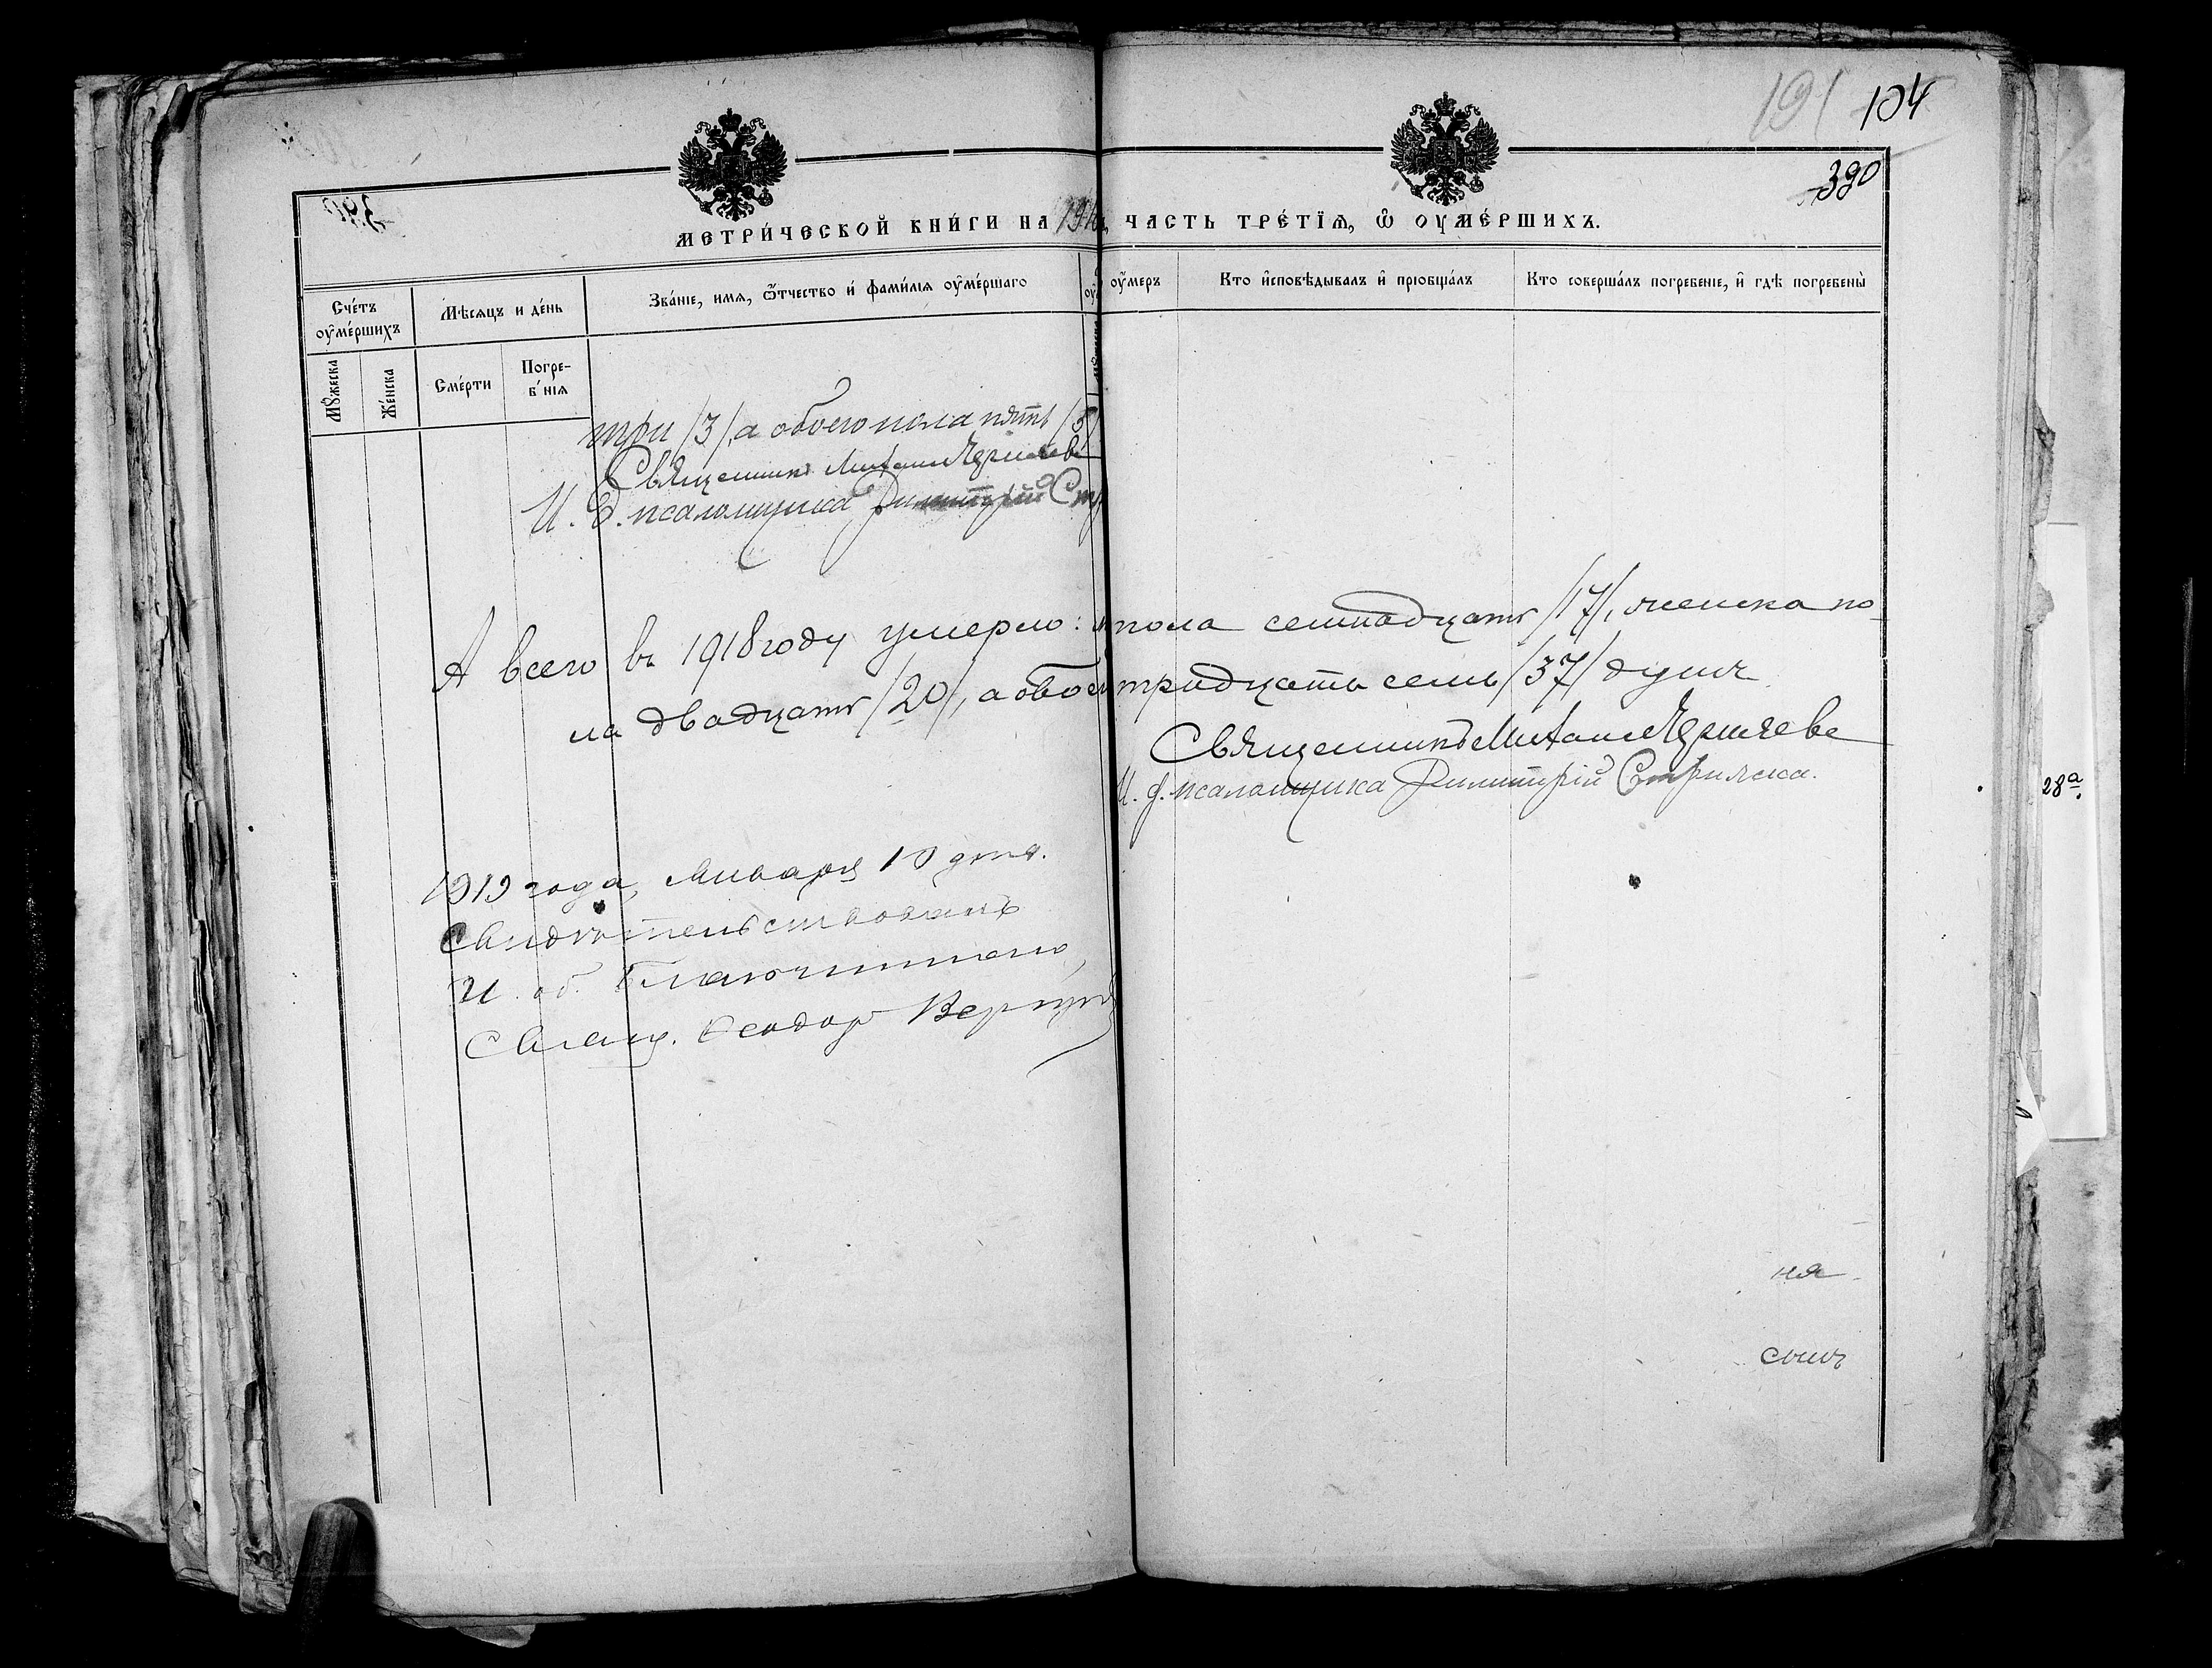 191 104
390
МЕТРИ́ЧЕСКОЙ КНИ́ГИ НА 1918, ЧАСТЬ ТРЕ́ТІѦ, Ѽ ОУМЕ́РШИХЪ.
Сче́тъ оуме́ршихъ
Мѣсяцъ и де́нь
Зва́ніе, имя, ѿтчество и́ фами́лія оуме́ршаго
оумеръ
Кто и́сповѣдывалъ и́ пріобща́лъ
Кто соверша́лъ погребеніе, и́ гдѣ погребены̀
Мꙋжеска
Же́нска
Сме́рти
Погребе́нія
три /3/, а обоего пола пять /5/
Священникъ Михаилъ
И. д. псаломщика Димитрій Стр
А всего въ 1918 году умерло: пола семнадцать /17/, женска по-
ла двадцать /20/, а обоего тридцать семь /37/ душъ
Священникъ Михаилъ
И. д. псаломщика Димитрій Стрижка.
1919 года, Января 10 дня.
Свидѣтельствовалъ
И. об. Благочиннаго,
Свящ. Ѳеодоръ
28а.
ня
сынъ